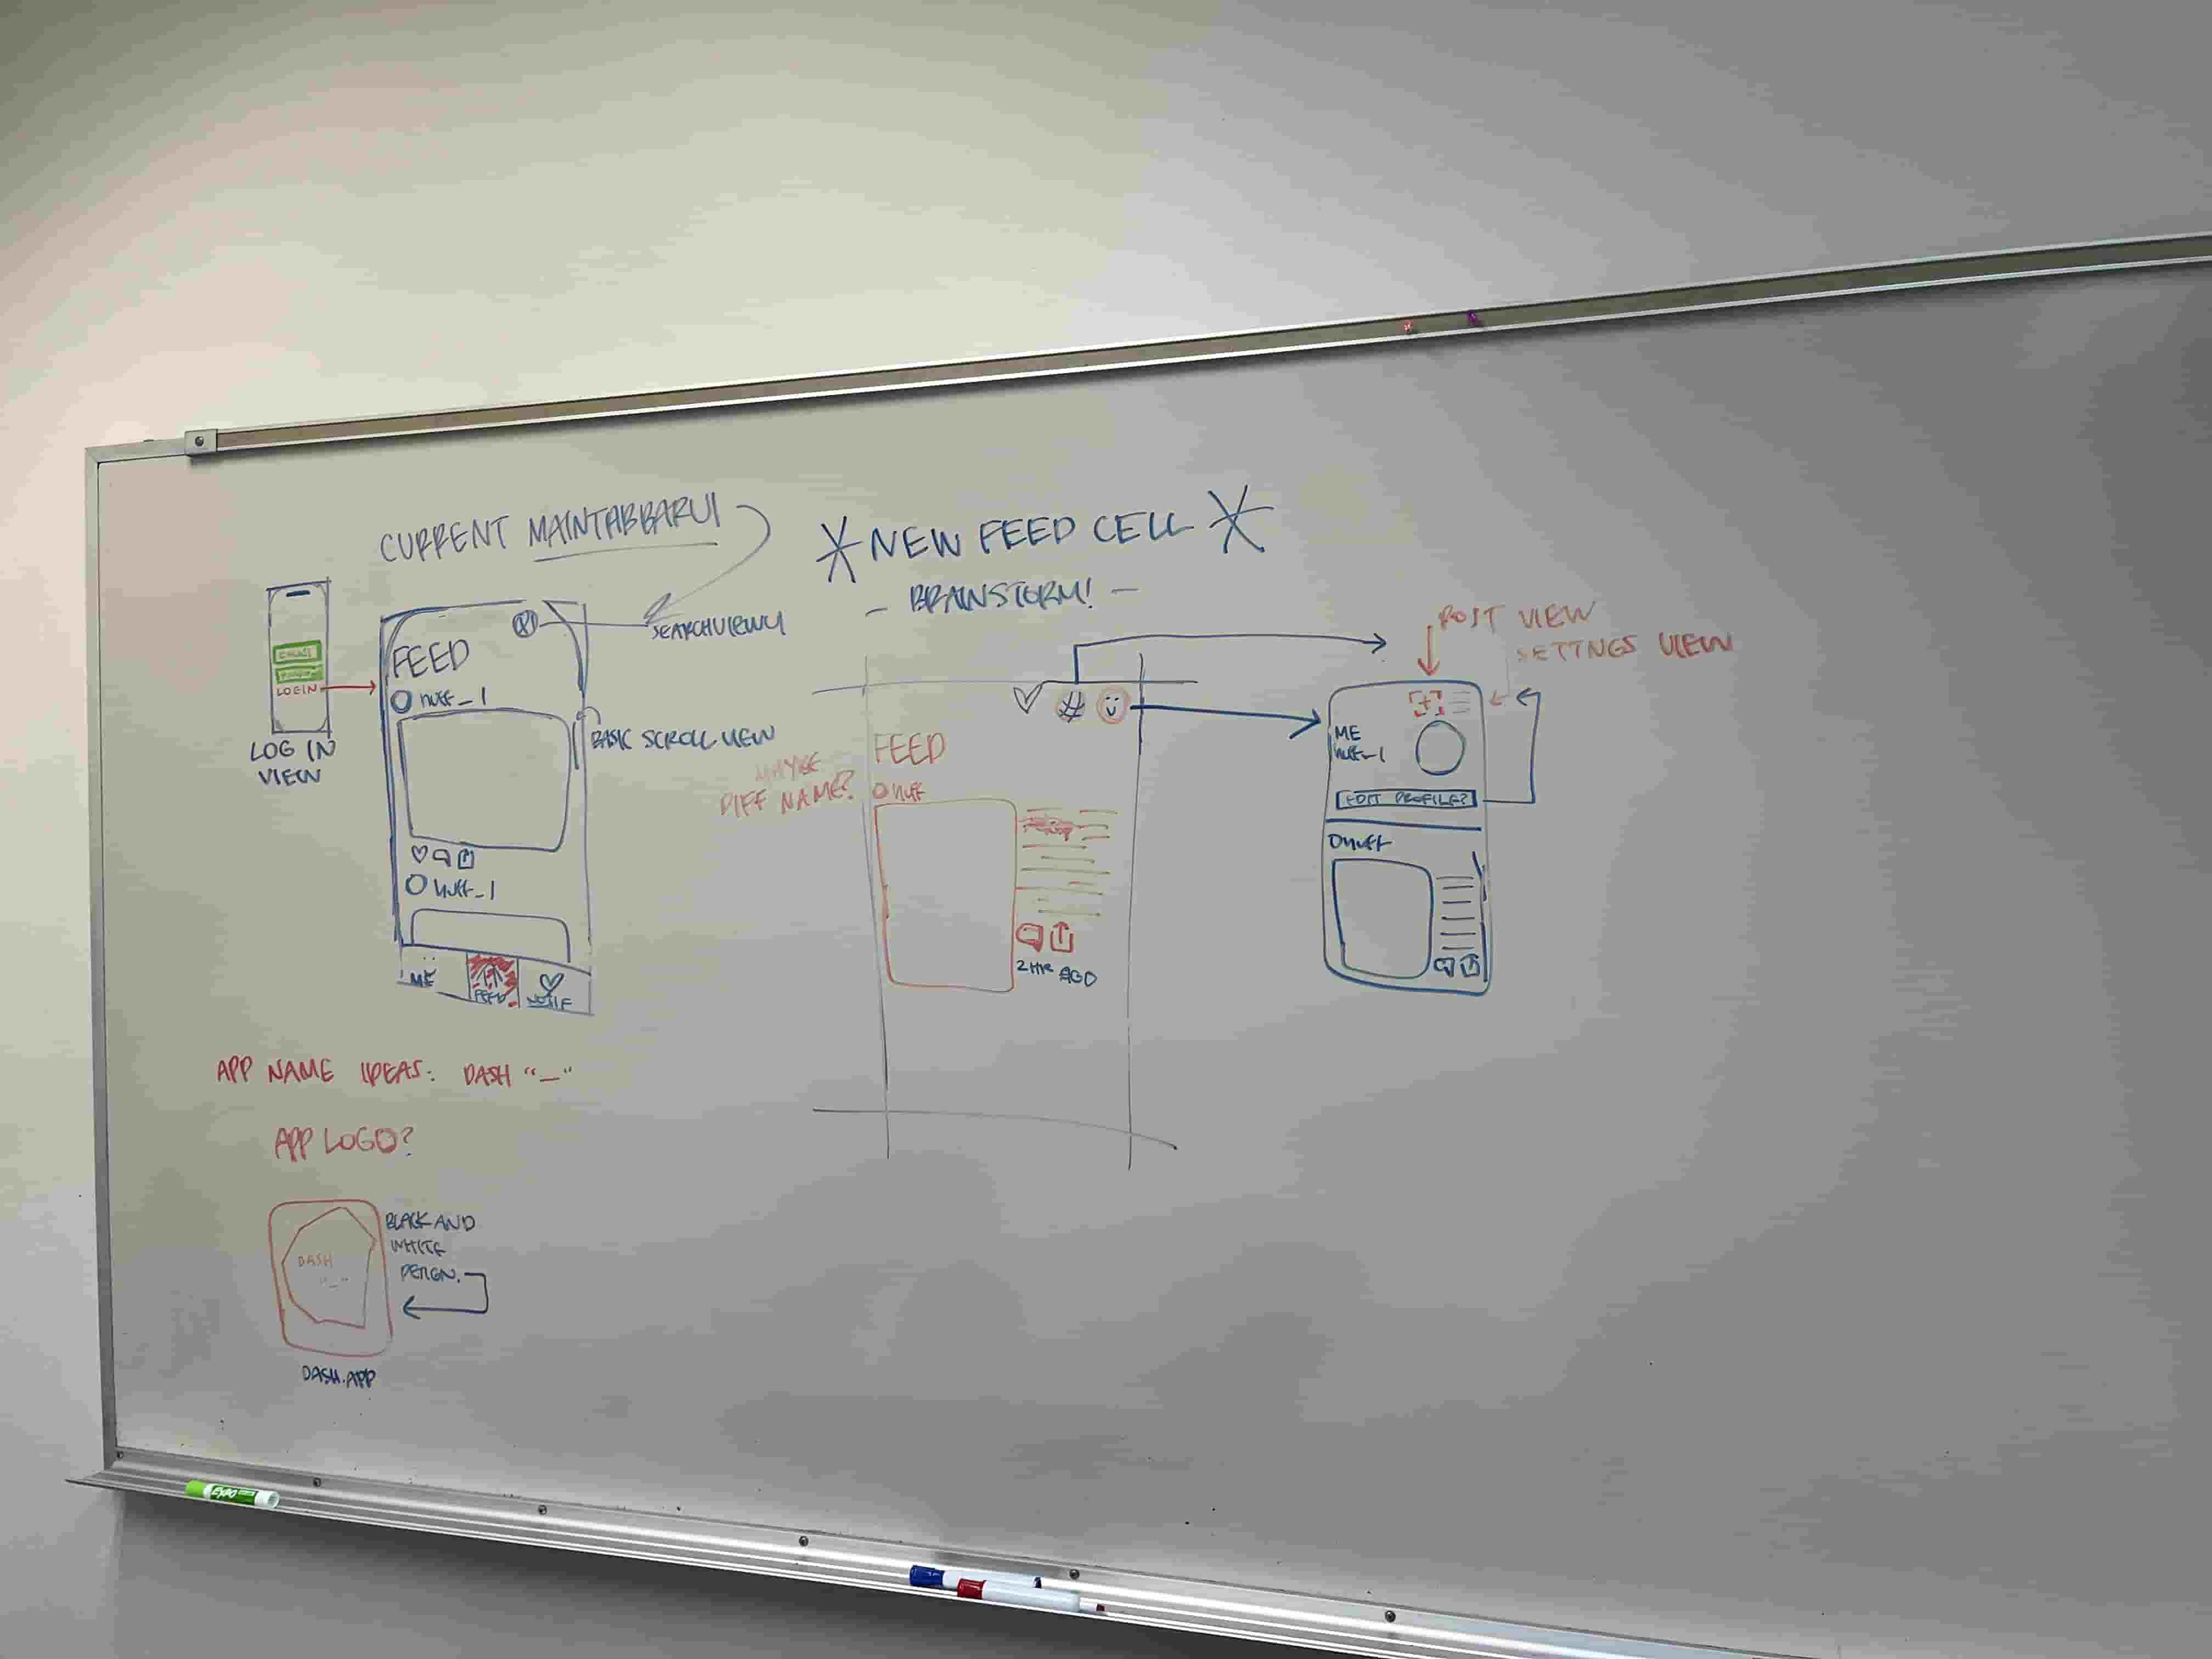 CURRENT MAINTABBARUI
SEARCHVIEWUI
LOGIN
LOG IN
VIEW
FEED
nuff_1
BASIC SCROLL VIEW
nuff_1
ME
FEED
NOTIF
NEW FEED CELL
- BRAINSTORM! -
#
FEED
MAYBE
DIFF NAME?
nuff
2 HR AGO
POST VIEW
SETTINGS VIEW
ME
nuff_1
EDIT PROFILE?
nuff
APP NAME IDEAS: DASH "_"
APP LOGO?
DASH
"_"
BLACK AND
WHITE
DESIGN.
DASH.APP
EXPO